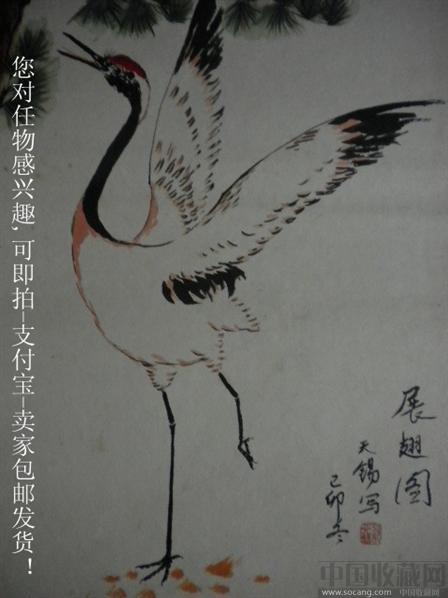 您对任物感兴趣,可即拍—支付宝—卖家包邮发货！
展翅图
天锡写
己卯冬
中国收藏网
www.socang.com 中国收藏网